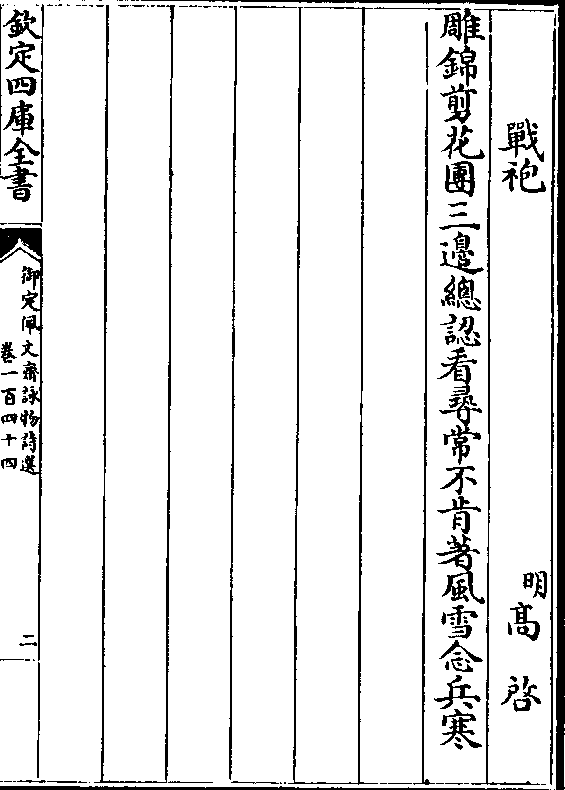 戰袍
明髙啓
雕錦剪花團三邊總認看尋常不肯著風雪念兵寒
欽定四庫全書
御定佩文齋詠物詩選
卷一百四十四
二